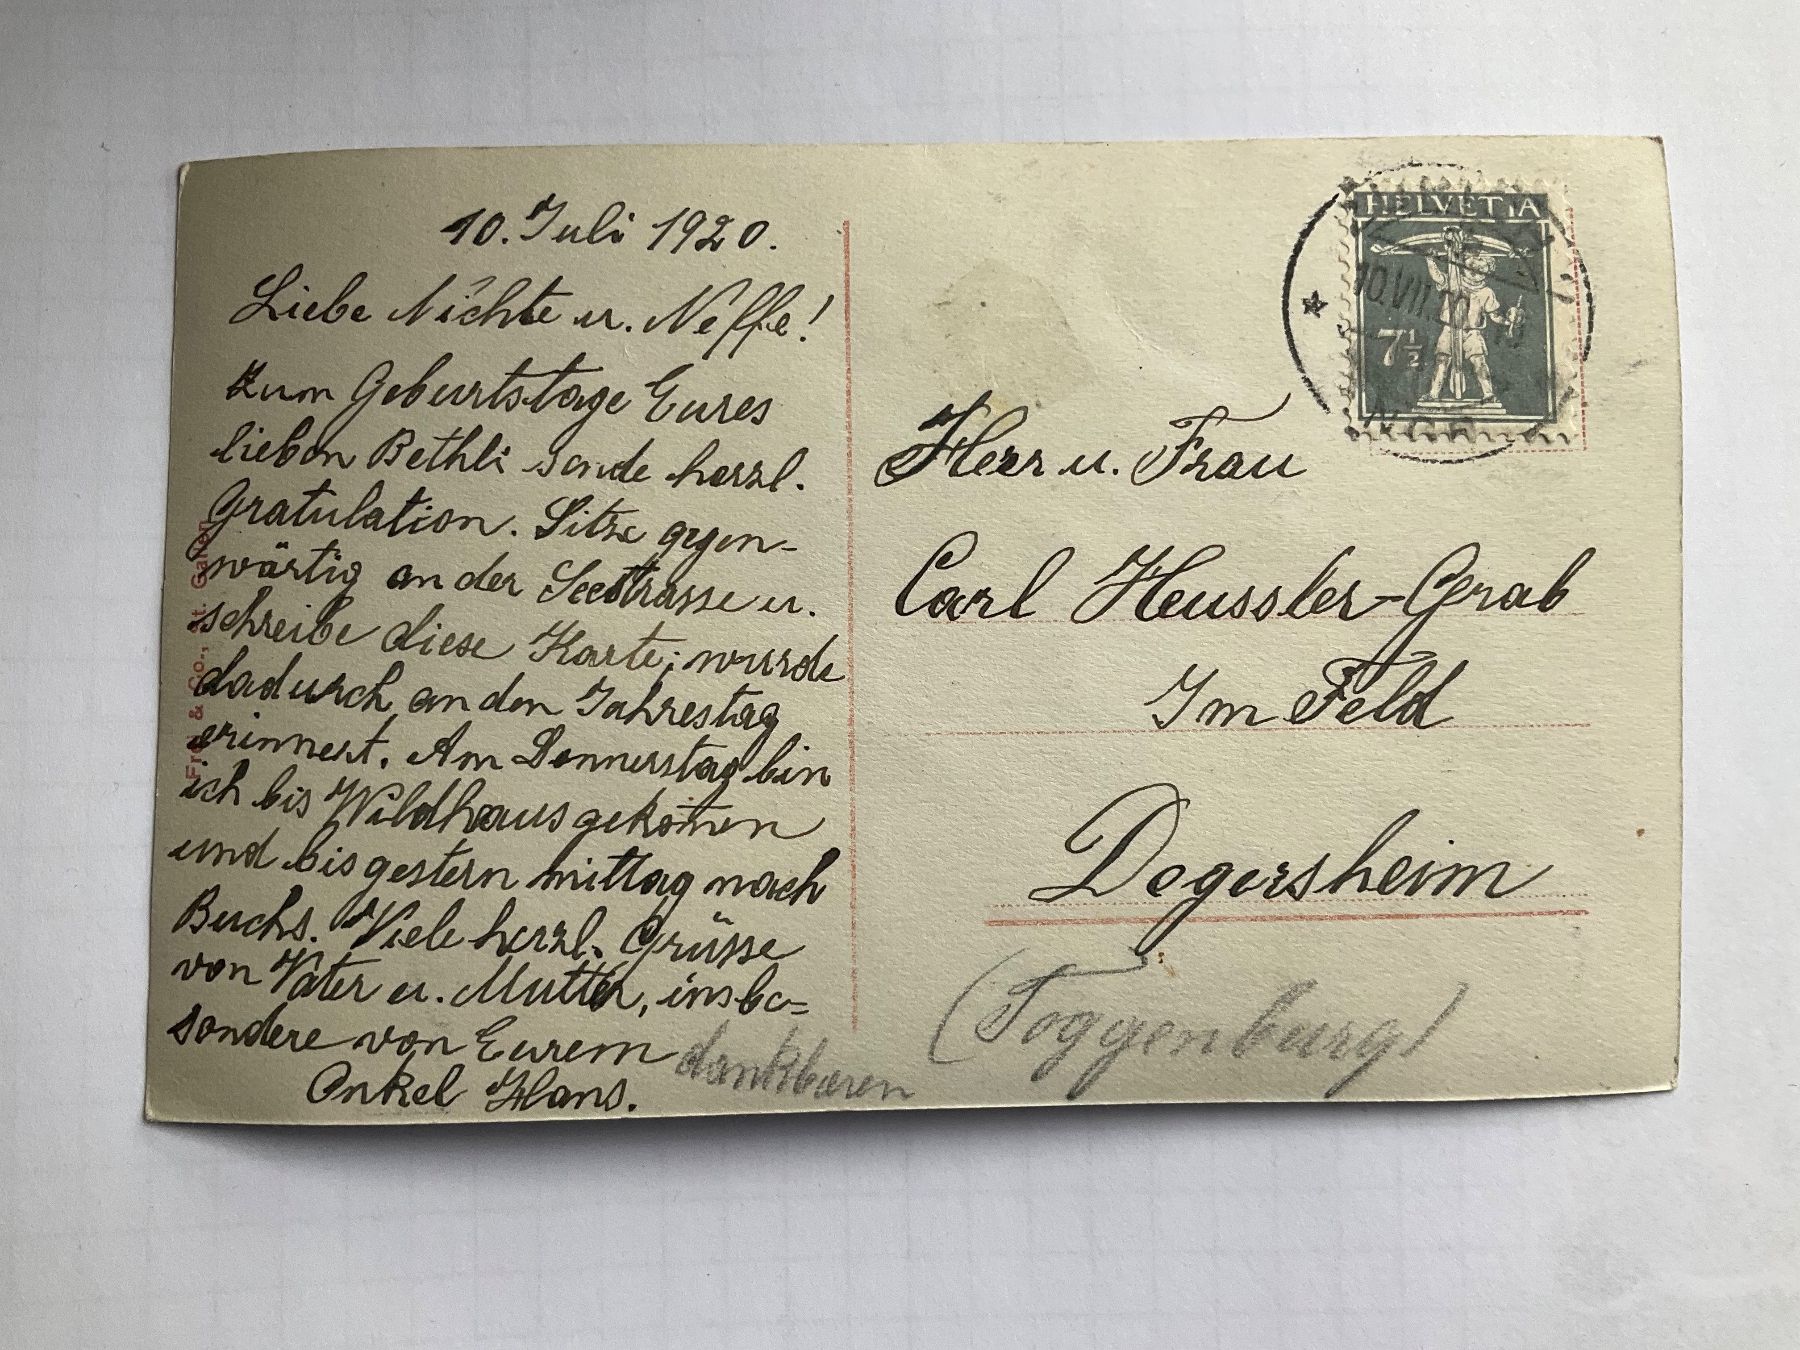 10. Juli 1920.
Liebe Nichte u. Neffe!
Zum Geburtstage Eures
lieben Bethli sende herzl.
Gratulation. Sitze gegen-
wärtig an der Seestrasse u.
schreibe diese Karte; wurde
dadurch an den Jahrestag
erinnert. Am Donnerstag bin
ich bis Wildhaus gekom̅en
und bis gestern mittag nach
Buchs. Viele herzl. Grüsse
von Vater u. Mutter, insbe=
sondere von Eurem dankbaren
Onkel Hans.
Frei & Co., St. Gallen
HELVETIA
7½
10.VII.20
Herr u. Frau
Carl Heussler-Grab
Im Feld
Degersheim
(Toggenburg)